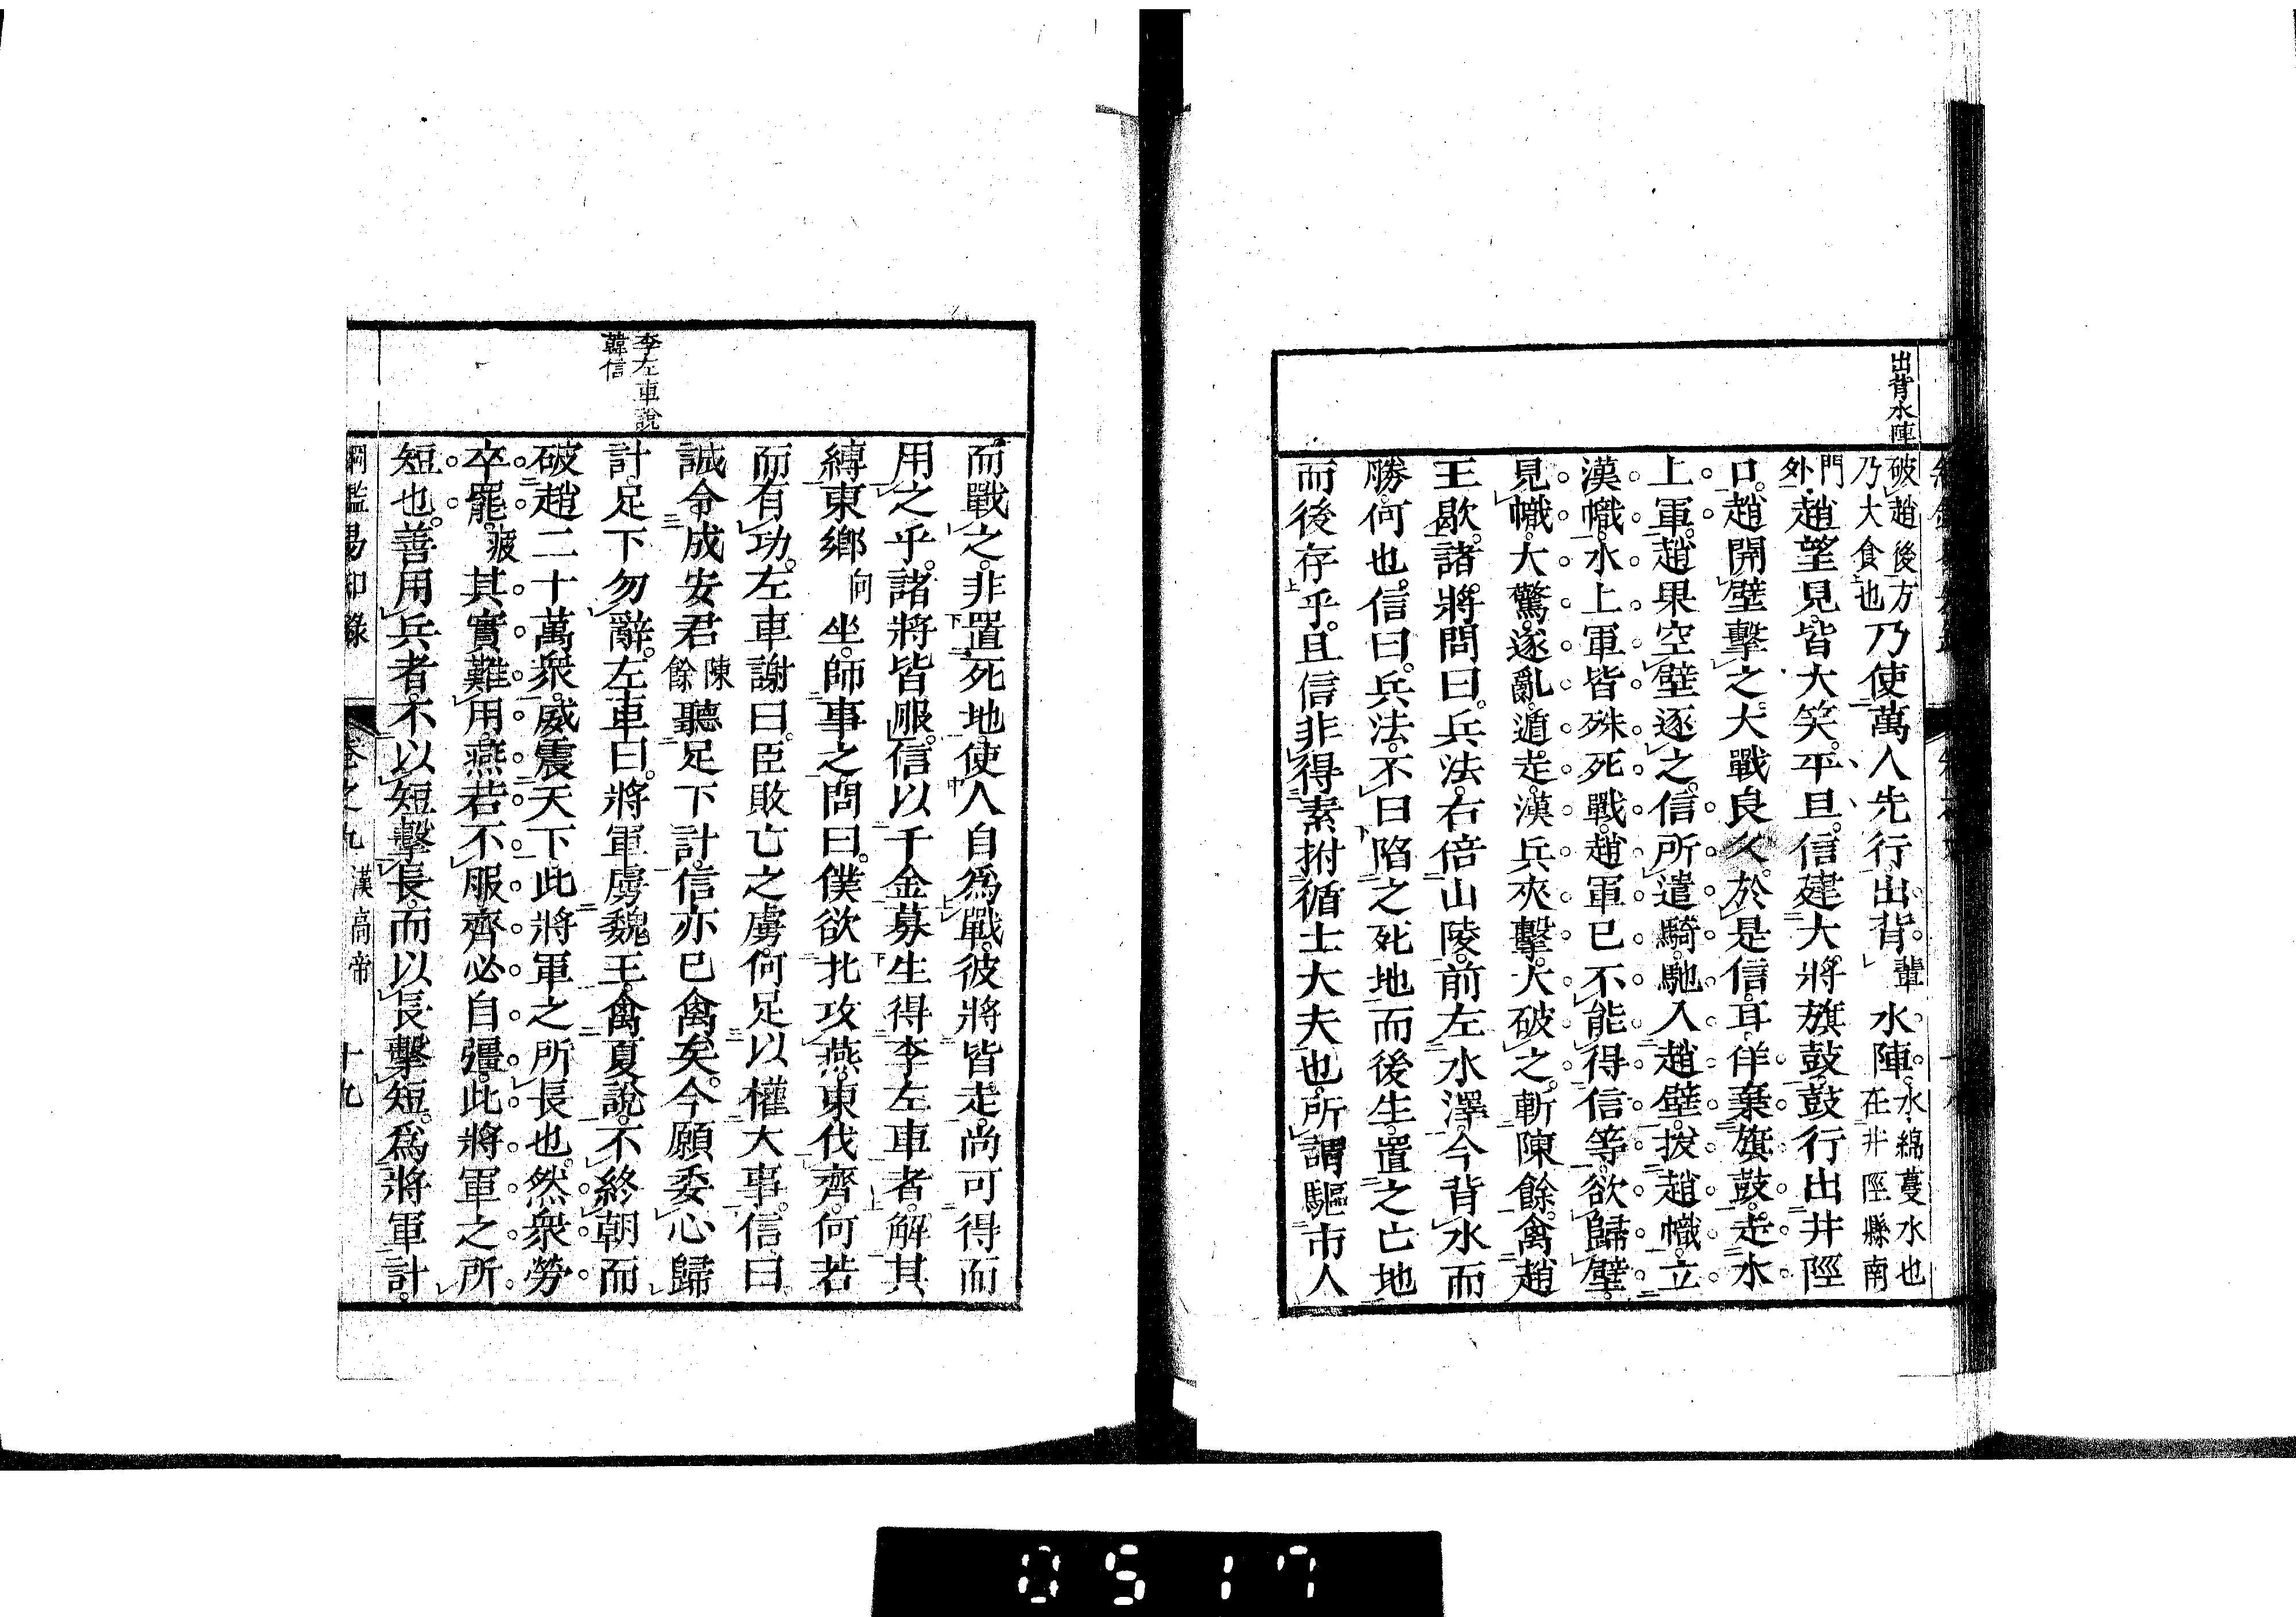 出背水陣
破趙後方
乃大食也
乃使萬人先行出背
輩
水陣
水綿蔓水也
在井陘縣南
門
外
趙望見皆大笑。平旦。信建大將旗鼓。鼓行出井陘
口。趙開壁擊之。大戰良久。於是信耳佯棄旗鼓。走水
上軍。趙果空壁逐之。信所遣騎馳入趙壁。拔趙幟。立
漢幟。水上軍皆殊死戰。趙軍已不能得信等。欲歸壁。
見幟。大驚。遂亂。遁走。漢兵夾擊。大破之。斬陳餘。禽趙
王歇。諸將問曰。兵法。右倍山陵。前左水澤。今背水而
勝。何也。信曰。兵法。不曰陷之死地而後生。置之亡地
而後存乎。且信非得素拊循士大夫也。所謂驅市人
李左車說
韓信
而戰之。非置死地。使人自爲戰。彼將皆走。尚可得而
用之乎。諸將皆服。信以千金募生得李左車者。解其
縛東鄉
向
坐。師事之。問曰。僕欲北攻燕。東伐齊。何若
而有功。左車謝曰。臣敗亡之虜。何足以權大事。信曰
誠令成安君
陳
餘
聽足下計。信亦已禽矣。今願委心歸
計。足下勿辭。左車曰。將軍虜魏王。禽夏說。不終朝而
破趙二十萬衆。威震天下。此將軍之所長也。然衆勞
卒罷。
疲
其實難用。燕若不服。齊必自彊。此將軍之所
短也。善用兵者。不以短擊長。而以長擊短。爲將軍計。
綱鑑易知錄
卷之九
漢高帝
十九
0517